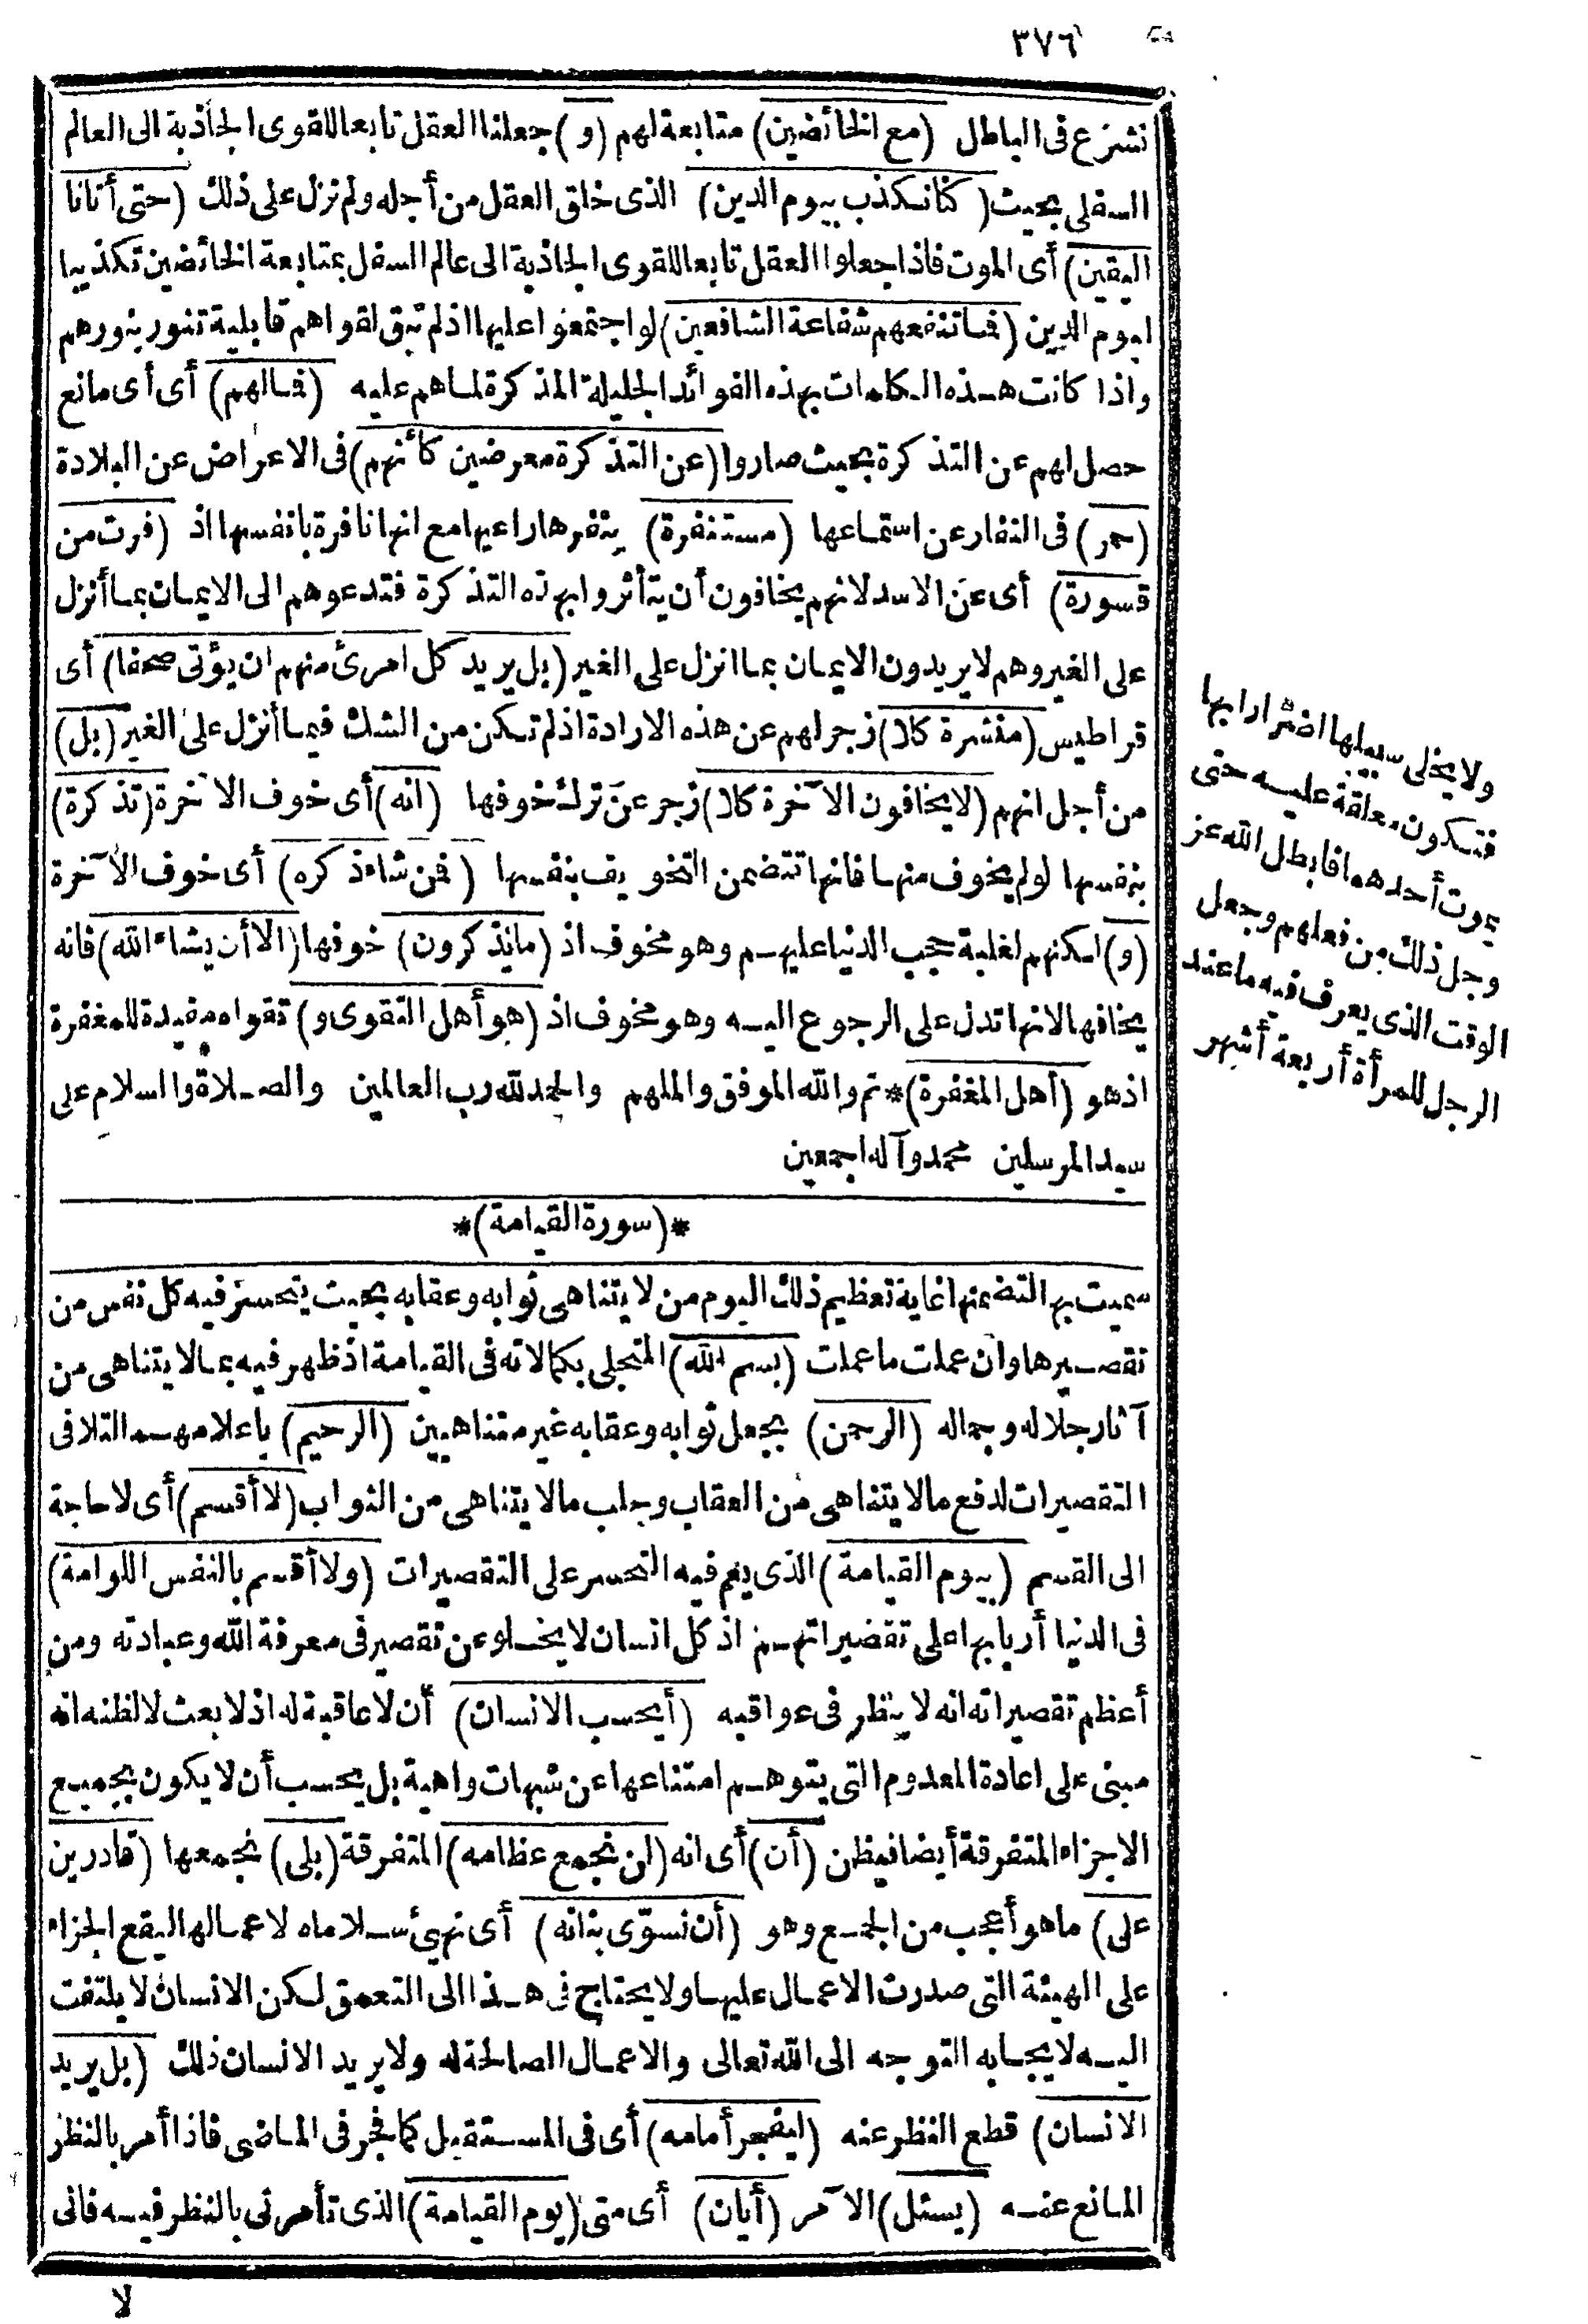 ٣٧٦
نشرع فى الباطل (مع الخائضين) متابعة لهم (و) جعلنا العقل تابعا للقوى الجاذبة الى العالم
السفلى بحيث (كنا نكذب بيوم الدين) الذى خلق العقل من أجله ولم نزل على ذلك (حتى أتانا
اليقين) أى الموت فاذا جعلوا العقل تابعا للقوى الجاذبة الى عالم السفل بمتابعة الخائضين تكذيبا
ليوم الدين (فما تنفعهم شفاعة الشافعين) لو اجتمعوا عليها اذ لم تبق لقواهم قابلية تنور بنورهم
واذا كانت هذه الكلمات بهذه الفوائد الجليلة المذكرة لما هم عليه (فما لهم) أى أى مانع
حصل لهم عن التذكرة بحيث صاروا (عن التذكرة معرضين كأنهم) فى الاعراض عن البلادة
(حمر) فى النفار عن استماعها (مستنفرة) ينفرها راعيها مع انها نافرة بانفسها اذ (فرت من
قسورة) أى عن الاسد لانهم يخافون أن يتأثروا بهذه التذكرة فتدعوهم الى الايمان بما أنزل
على الغير وهم لا يريدون الايمان بما انزل على الغير (بل يريد كل امرئ منهم ان يؤتى صحفا) أى
قراطيس (منشرة كلا) زجر لهم عن هذه الارادة اذ لم تكن من الشك فيما أنزل على الغير (بل)
من أجل انهم (لا يخافون الآخرة كلا) زجر عن ترك خوفها (انه) أى خوف الآخرة (تذكرة)
بنفسها لو لم يخوف منها فانها تتضمن التخويف بنفسها (فمن شاء ذكره) أى خوف الآخرة
(و) لكنهم لغلبة حجب الدنيا عليهم وهو مخوف اذ (ما يذكرون) خوفها (الا أن يشاء الله) فانه
يخافها لانها تدل على الرجوع اليه وهو مخوف اذ (هو أهل التقوى و) تقواه مفيدة للمغفرة
اذ هو (أهل المغفرة)* تم والله الموفق والملهم والحمد لله رب العالمين والصلاة والسلام على
سيد المرسلين محمد وآله اجمعين
*(سورة القيامة)*
سميت بها لتضمنها غاية تعظيم ذلك اليوم من لا يتناهى ثوابه وعقابه بحيث يتحسر فيه كل نفس من
تقصيرها وان عملت ما عملت (بسم الله) المتجلى بكمالاته فى القيامة اذ ظهر فيه بما لا يتناهى من
آثار جلاله وجماله (الرحمن) بجعل ثوابه وعقابه غير متناهيين (الرحيم) باعلامهم التلافى
التقصيرات لدفع ما لا يتناهى من العقاب وجلب ما لا يتناهى من الثواب (لا أقسم) أى لا حاجة
الى القسم (بيوم القيامة) الذى يعم فيه التحسر على التقصيرات (ولا أقسم بالنفس اللوامة)
فى الدنيا أربابها على تقصيراتهم اذ كل انسان لا يخلو عن تقصير فى معرفة الله وعبادته ومن
أعظم تقصيراته انه لا ينظر فى عواقبه (أيحسب الانسان) أن لا عاقبة له اذ لا بعث لا لظنه انه
مبنى على اعادة المعدوم التى يتوهم امتناعها عن شبهات واهية بل يحسب أن لا يكون بجميع
الاجزاء المتفرقة أيضا فيظن (أن) أى انه (لن نجمع عظامه) المتفرقة (بلى) نجمعها (قادرين
على) ما هو أعجب من الجمع وهو (أن نسوّى بنانه) أى نهيئ سلاماه لاعمالها ليقع الجزاء
على الهيئة التى صدرت الاعمال عليها ولا يحتاج فى هذا الى التعمق لكن الانسان لا يلتفت
اليه لايجابه التوجه الى الله تعالى والاعمال الصالحة له ولا يريد الانسان ذلك (بل يريد
الانسان) قطع النظر عنه (ليفجر أمامه) أى فى المستقبل كما فجر فى الماضى فاذا أمر بالنظر
المانع عنه (يسئل) الآمر (أيان) أى متى (يوم القيامة) الذى تأمرنى بالنظر فيه فانى
لا
ولا يخلى سبيلها اضرارا بها
فتكون معلقة عليه حتى
يموت أحدهما فابطل الله عز
وجل ذلك من فعلهم وجعل
الوقت الذى يعرف فيه ما عند
الرجل للمرأة أربعة أشهر